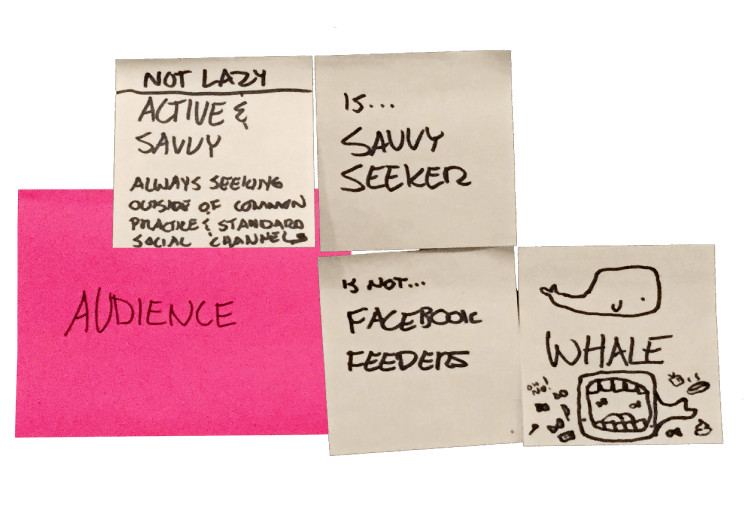 NOT LAZY
ACTIVE &
SAVVY
ALWAYS SEEKING
OUTSIDE OF COMMON
PRACTICE & STANDARD
SOCIAL CHANNELS
IS...
SAVVY
SEEKER
AUDIENCE
IS NOT...
FACEBOOK
FEEDERS
WHALE
OH
NO!